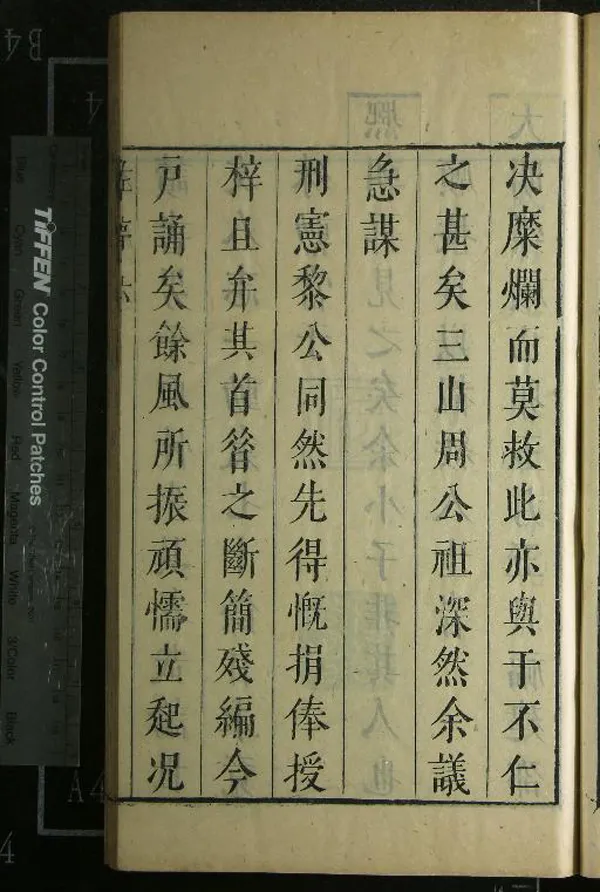 决糜爛而莫救此亦與于不仁
之甚矣三山周公祖深然余議
急謀
刑憲黎公同然先得慨捐俸授
梓且弁其首昝之斷簡殘編今
戸誦矣餘風所振頑懦立起况
TIFFEN Color Control Patches
Blue
Cyan
Green
Yellow
Red
Magenta
White
3/Color
Black
B4
A4